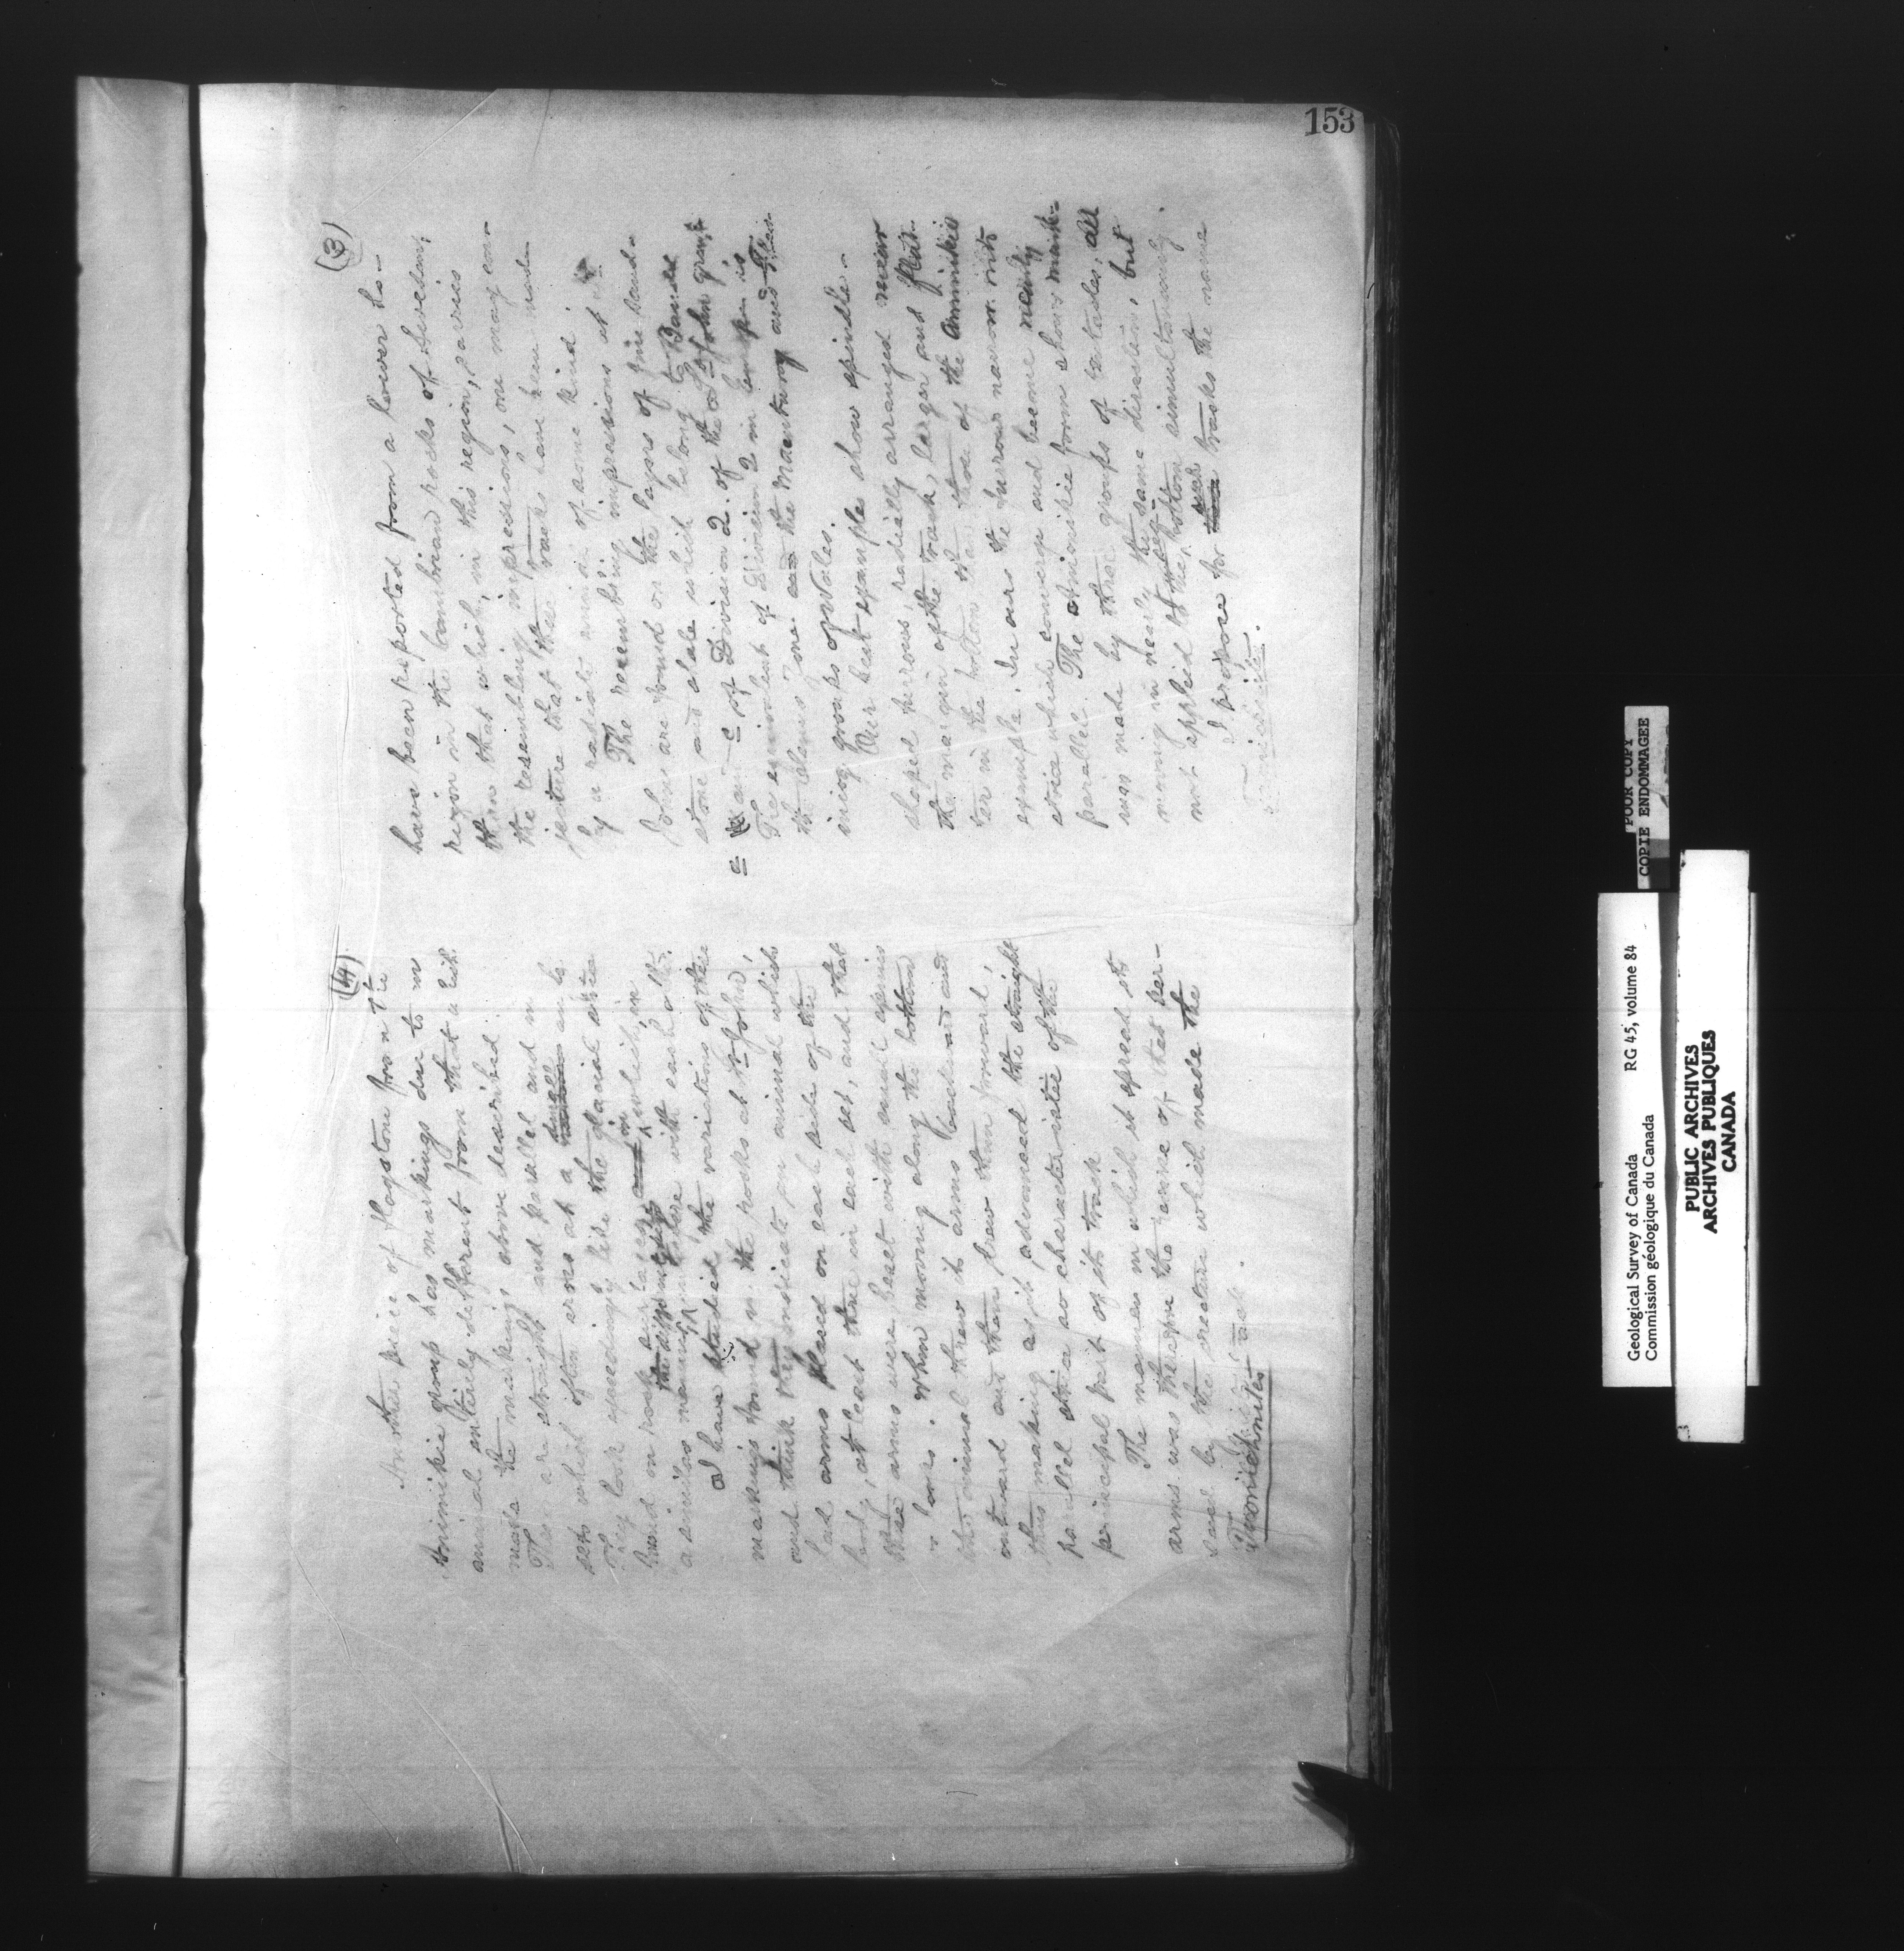 153
(3)
have been reported from a lower ho-
rizon in the Cambrian rocks of Sweden,
than that which, in this region, carries
the resembling impressions, one may con-
jecture that these tracks have been made
by a radiate animal of some kind.
The resembling impressions at St.
John are found on the layers of fine sand-
stone and shale which belong to Bands
a and c of Division 2. of the St John group.
The equivalent of Division 2 in Europe is
the Olenus Zone and the Maentwrog and Ffes-
tiniog groups of Wales.
Our best examples show spindle-
shaped furrows, radially arranged near
the margin of the track, larger and flat-
ter in the bottom than those of the Animikie
example. In ours the furrows narrow into
striæ which converge and become nearly
parallel. The Animikie form shows mark-
ings made by three groups of tentacles, all
moving in nearly the same direction, but
not applied to the sea-bottom simultaneously.
I propose for such tracks the name
Taonichnites.
(4)
Another piece of flagstone from the
Animikie group has markings due to an
animal entirely different from that which
made the markings above described.
These are straight and parallel and in
sets which often cross at a small angle
They look exceedingly like the glacial striæ
found on rock surfaces and in which, in
a similar manner, the different sets intersect with each other.
I have studied the variations of these
markings found in the rocks at St John,
and think they indicate an animal which
had arms placed on each side of the
body, at least three in each set, and that
these arms were beset with small spines
or hooks. When moving along the bottom
this animal threw its arms backward and
outward and then drew them forward,
thus making as it advanced the straight
parallel striæ so characteristic of the
principal part of its track
The manner in which it spread its
arms was therefore the reverse of that per-
sued by the creature which made the
Taonichnites track.
POOR COPY
COPIE ENDOMMAGEE
Geological Survey of Canada RG 45, volume 84
Commission géologique du Canada
PUBLIC ARCHIVES
ARCHIVES PUBLIQUES
CANADA